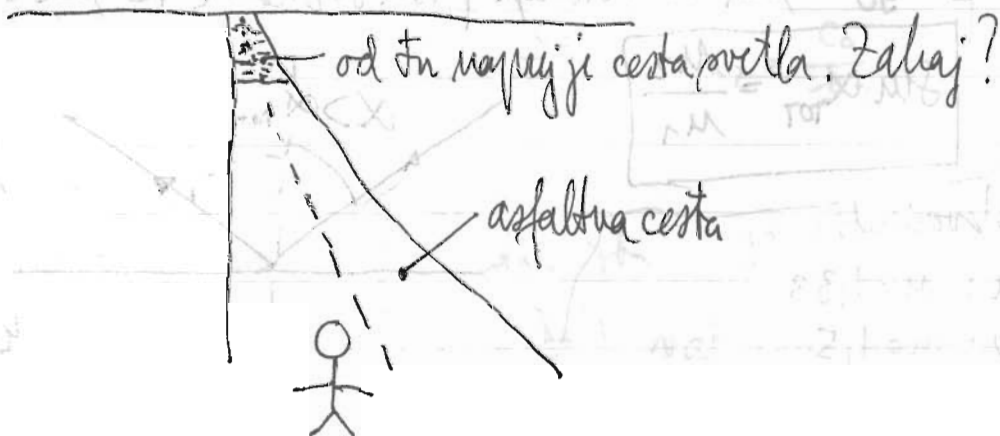 od tu naprej je cesta svetla. Zakaj?
asfaltna cesta